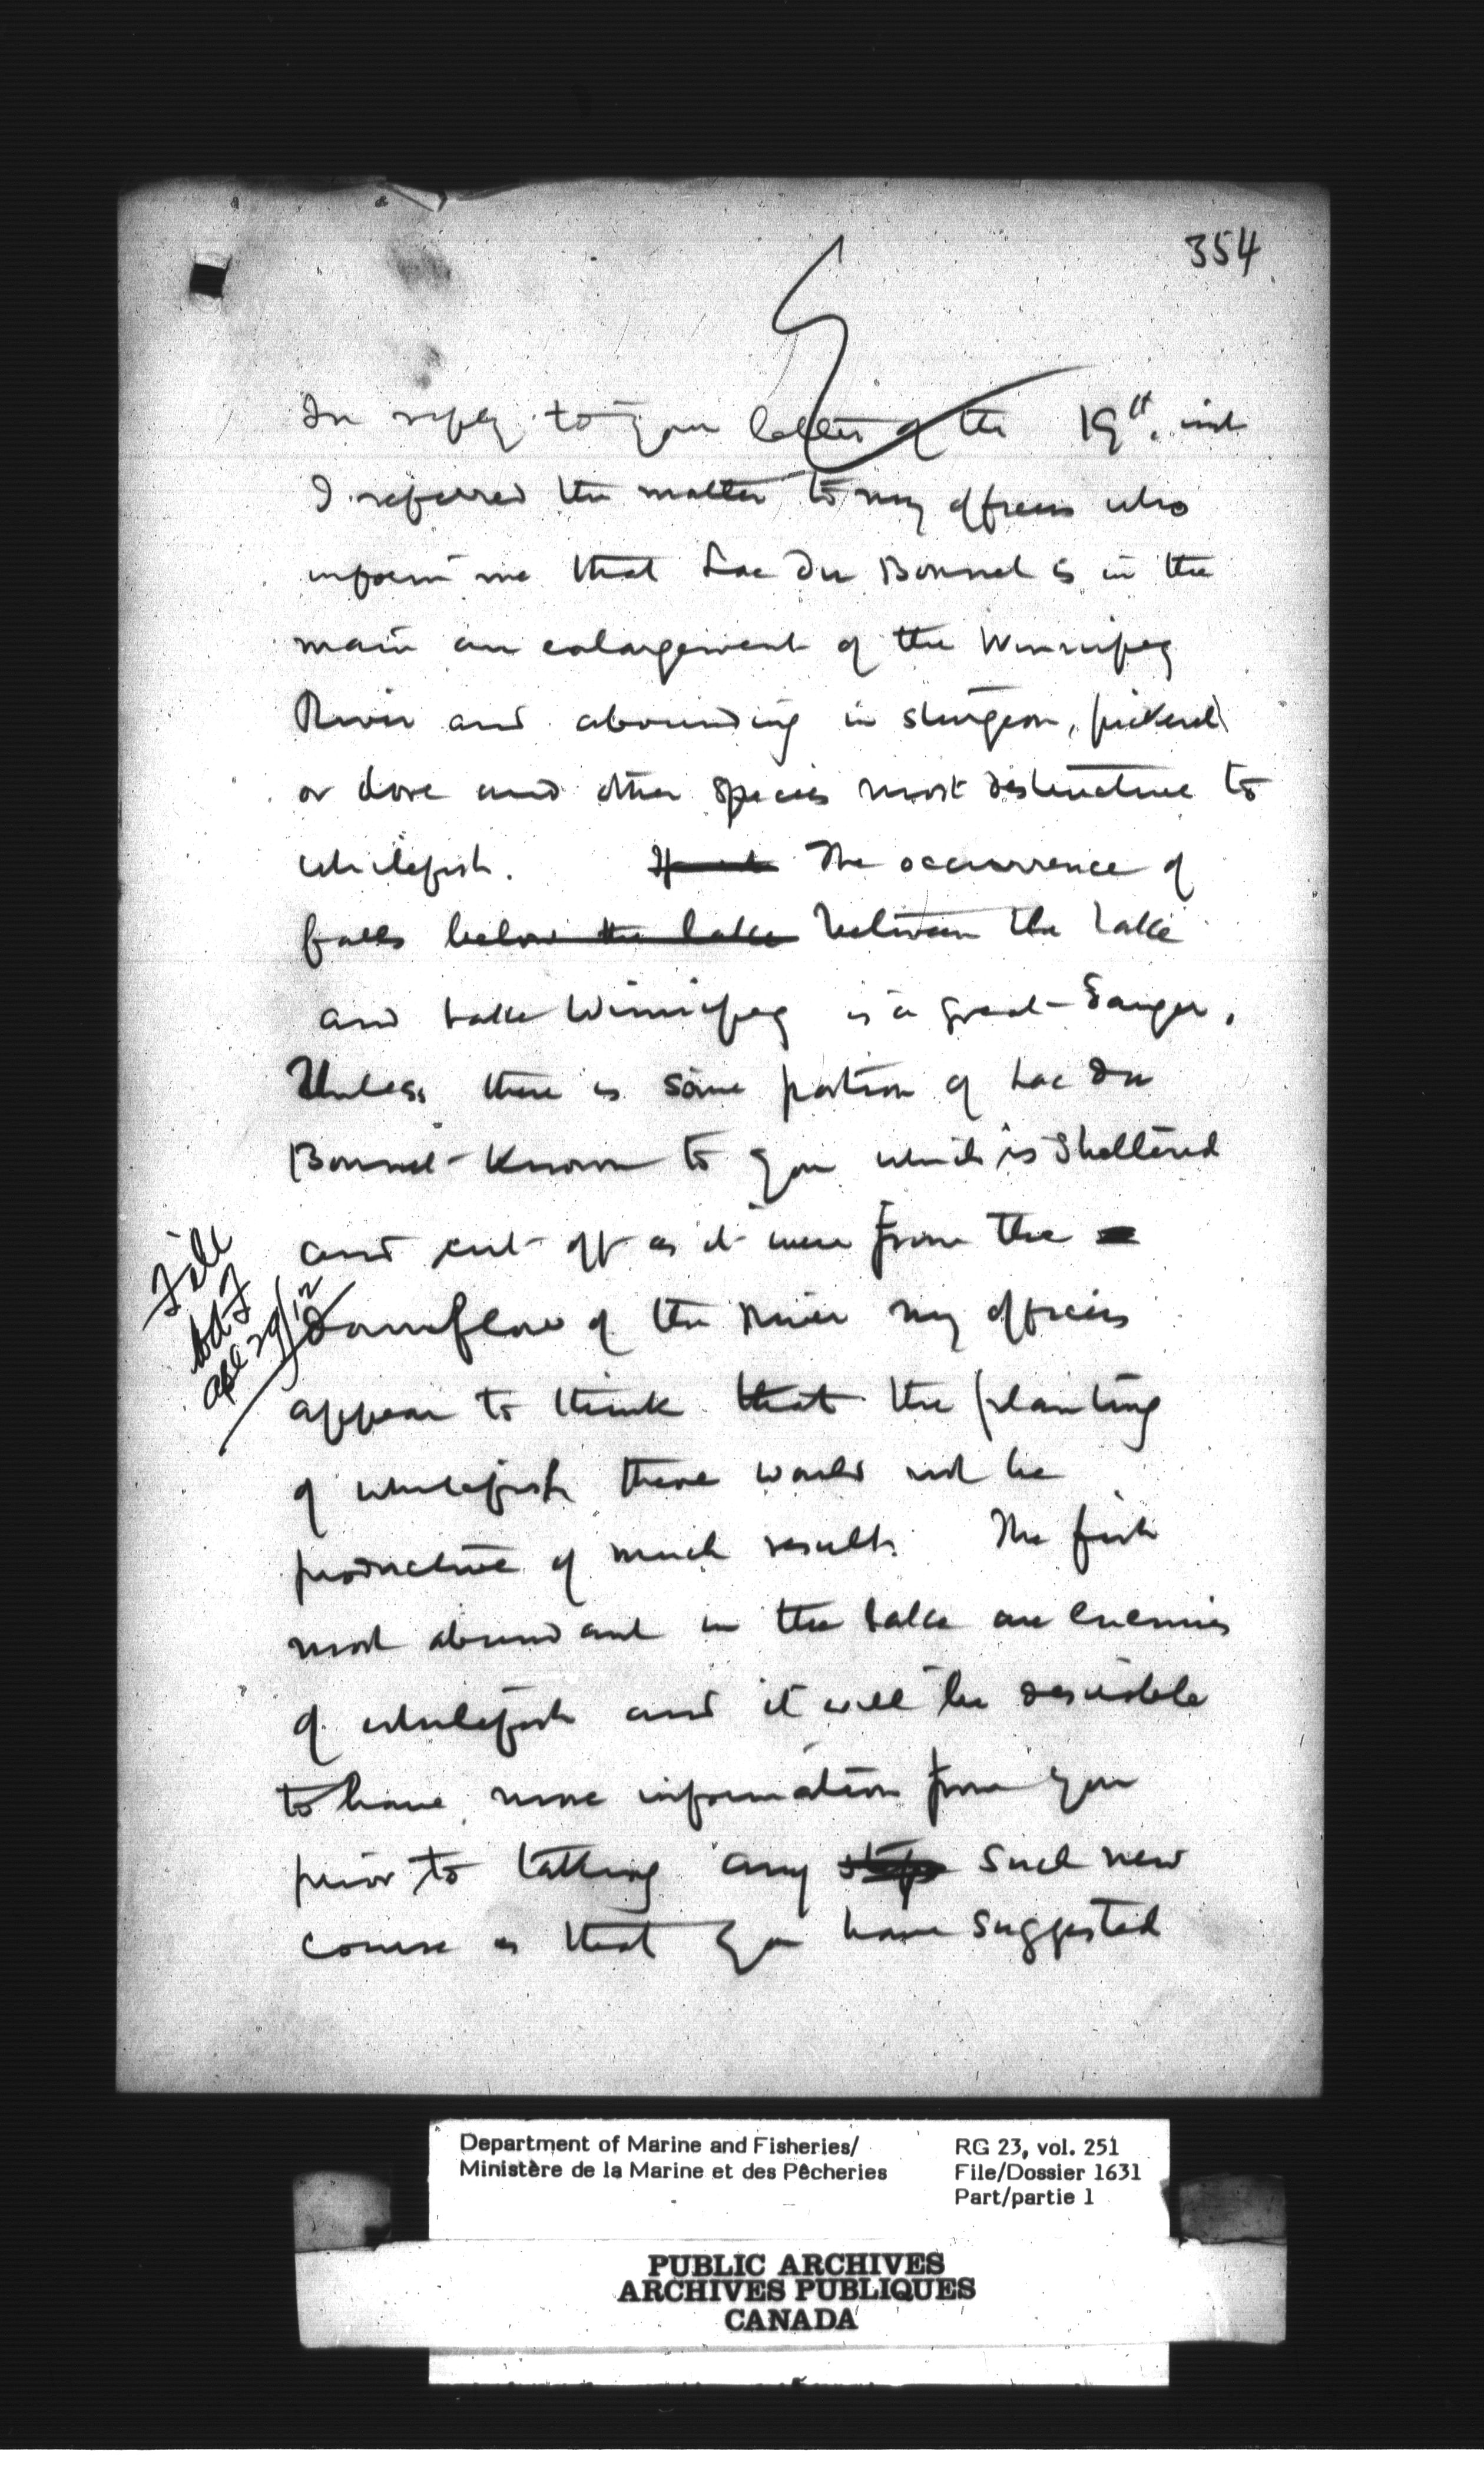 354
In reply to your letter of the 19th. inst
I referred the matter to my officers who
inform me that Lac Du Bonnet is in the
main an enlargement of the Winnipeg
River and abounding in sturgeon, pickerel
or dore and other species most destructive to
whitefish. The occurrence of
falls below the lake between the Lake
and Lake Winnipeg is a great danger.
Unless there is some portion of Lac Du
Bonnet known to you which is sheltered
and cut off as it were from the
File
Apl 29/12
downflow of the River my officers
appear to think that the planting
of whitefish there would not be
productive of much result. The fish
most abundant in the Lake are enemies
of whitefish and it will be desirable
to have more information from you
prior to taking any steps such new
course as that you have suggested
Department of Marine and Fisheries/
Ministère de la Marine et des Pêcheries
RG 23, vol. 251
File/Dossier 1631
Part/partie 1
PUBLIC ARCHIVES
ARCHIVES PUBLIQUES
CANADA